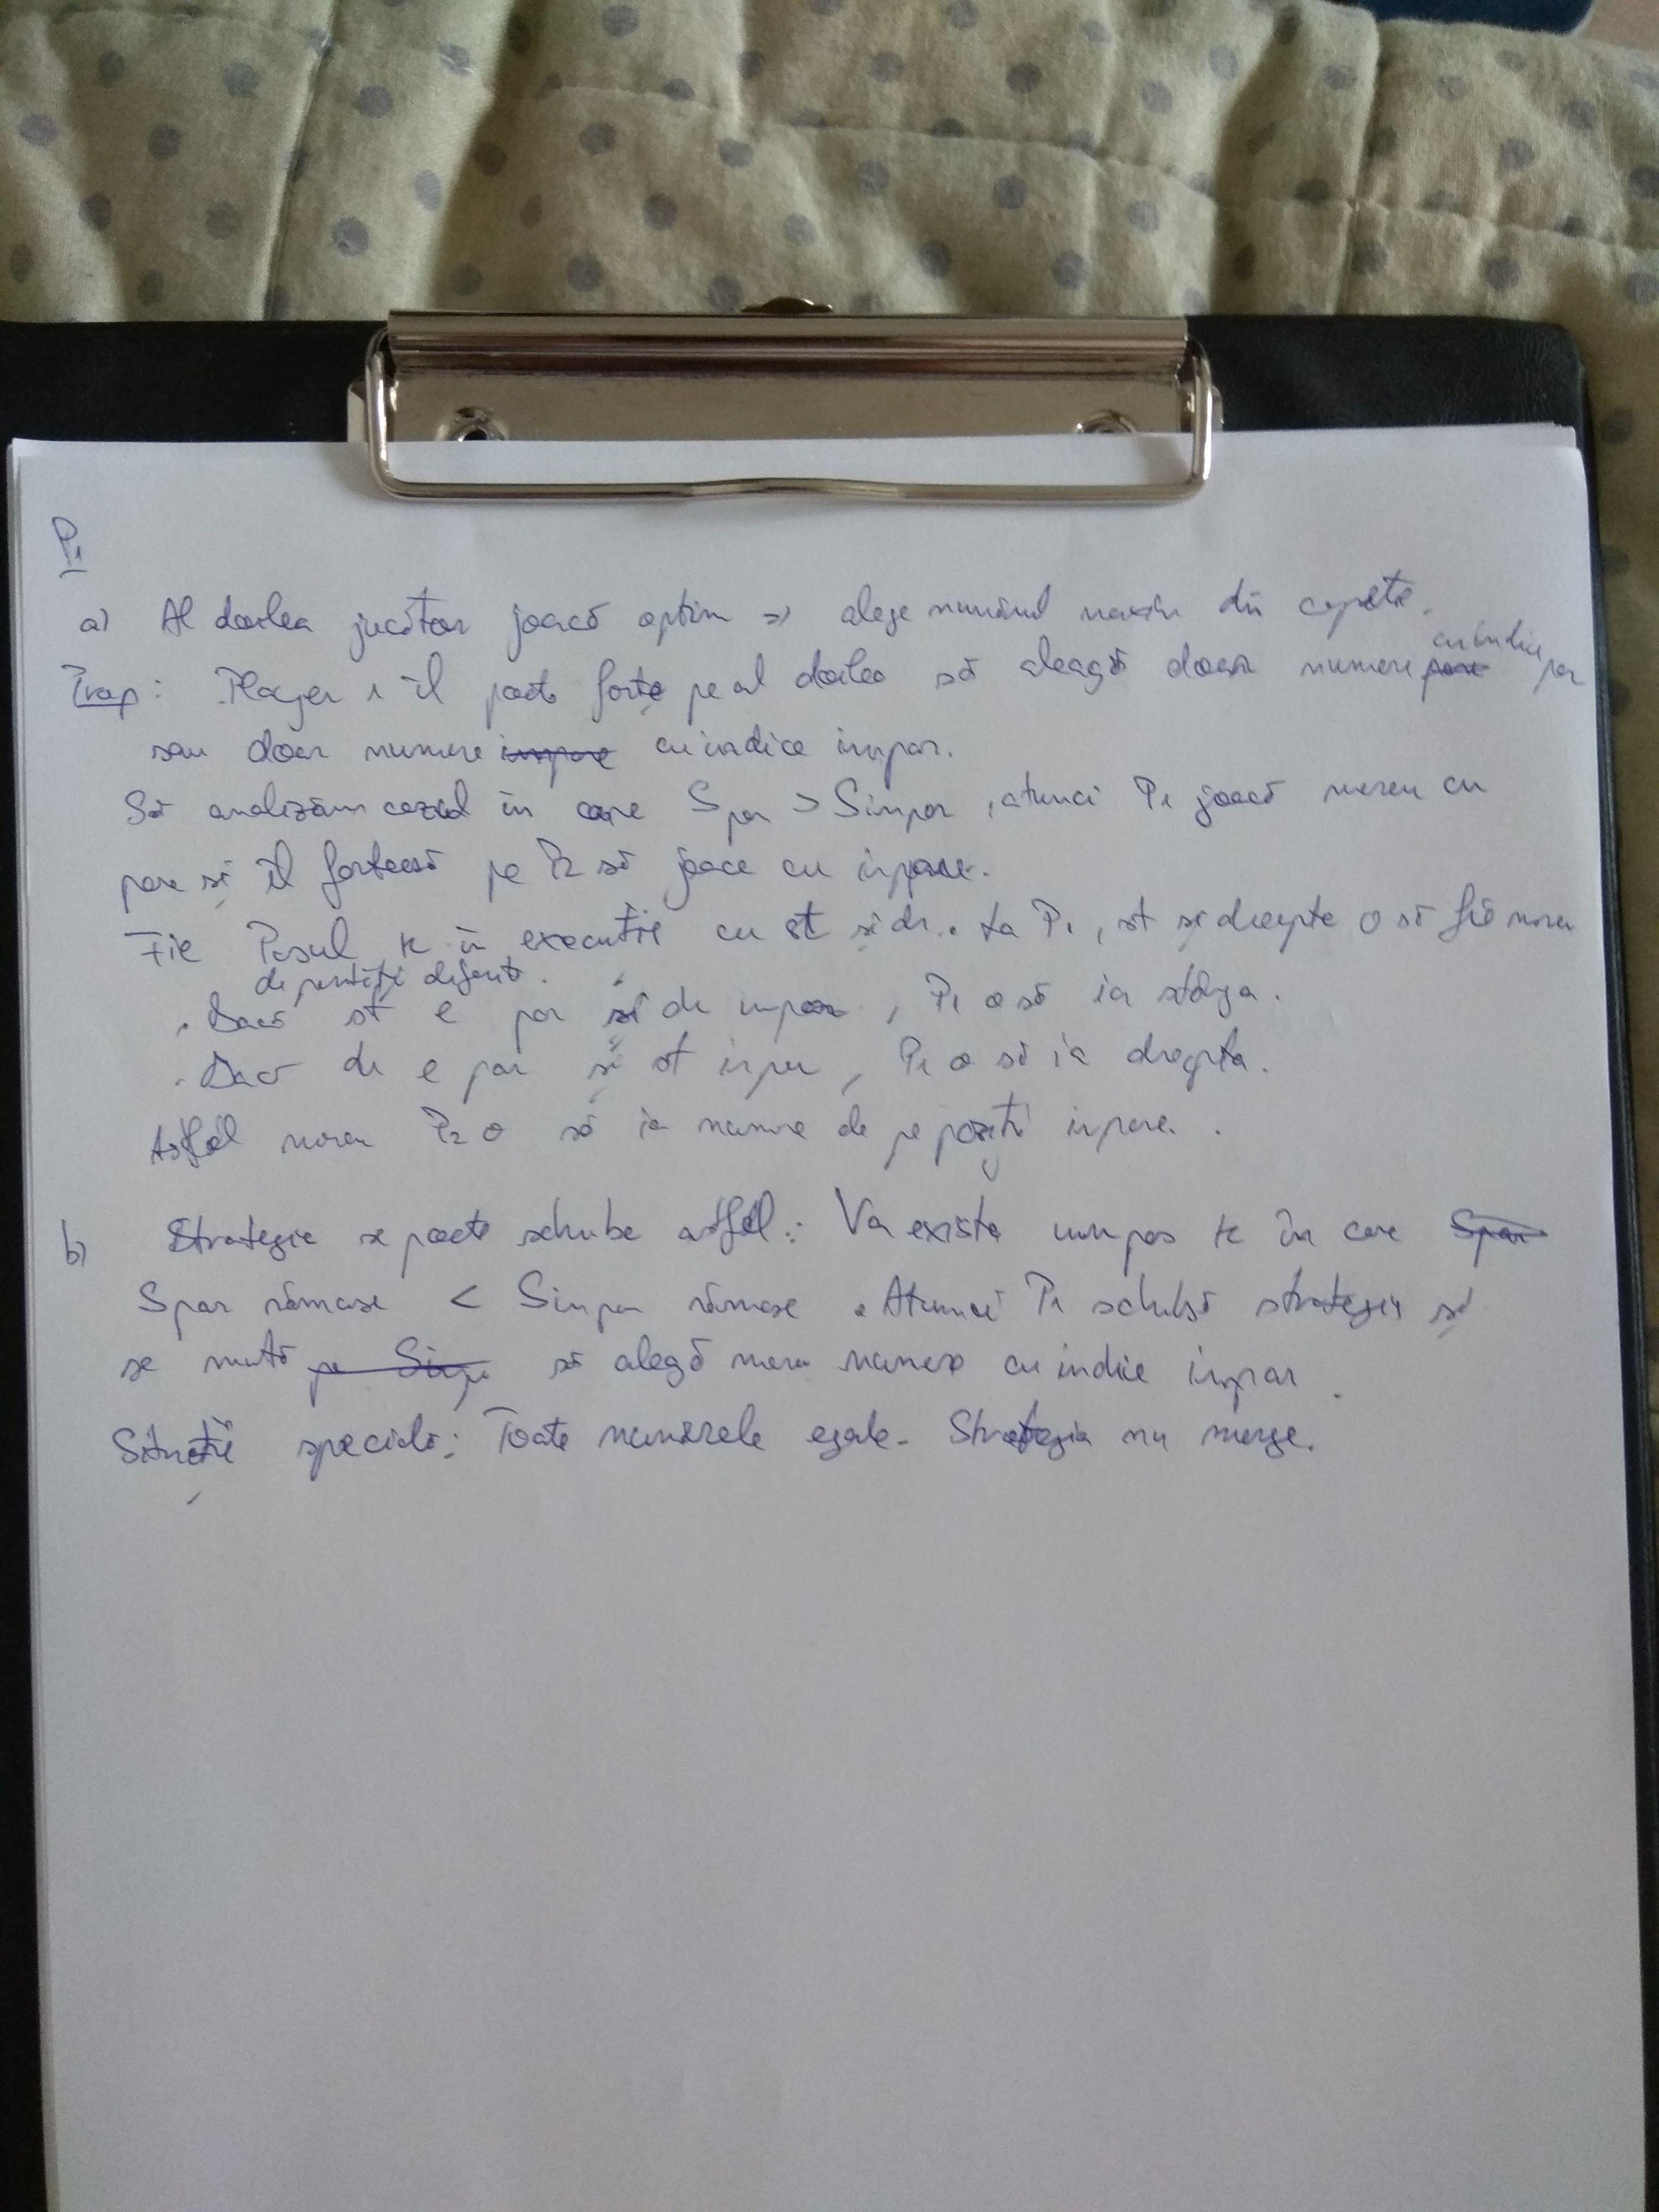 P1
a) Al doilea jucător joacă optim => alege numărul maxim din capete.
Trap: Player 1 îl poate forța pe al doilea să aleagă doar numere cu indice par
sau doar numere cu indice impar.
Să analizăm cazul în care Spar > Simpar, atunci P1 joacă mereu cu
pare și îl forțează pe P2 să joace cu impare.
Fie Pasul k în execuție cu st și dr. La P1, st și dreapta o să fie mereu
de parități diferite.
. Dacă st e par și dr impar, P1 o să ia stânga.
. Dacă dr e par și st impar, P1 o să ia dreapta.
Astfel mereu P2 o să ia numere de pe poziții impare.
b) Strategie se poate schimba astfel: Va exista un pas k în care Spar
Spar rămase < Simpar rămase. Atunci P1 schimbă strategia și
se mută să alegă mereu numere cu indice impar.
Situație specială: Toate numerele egale. Strategia nu merge.